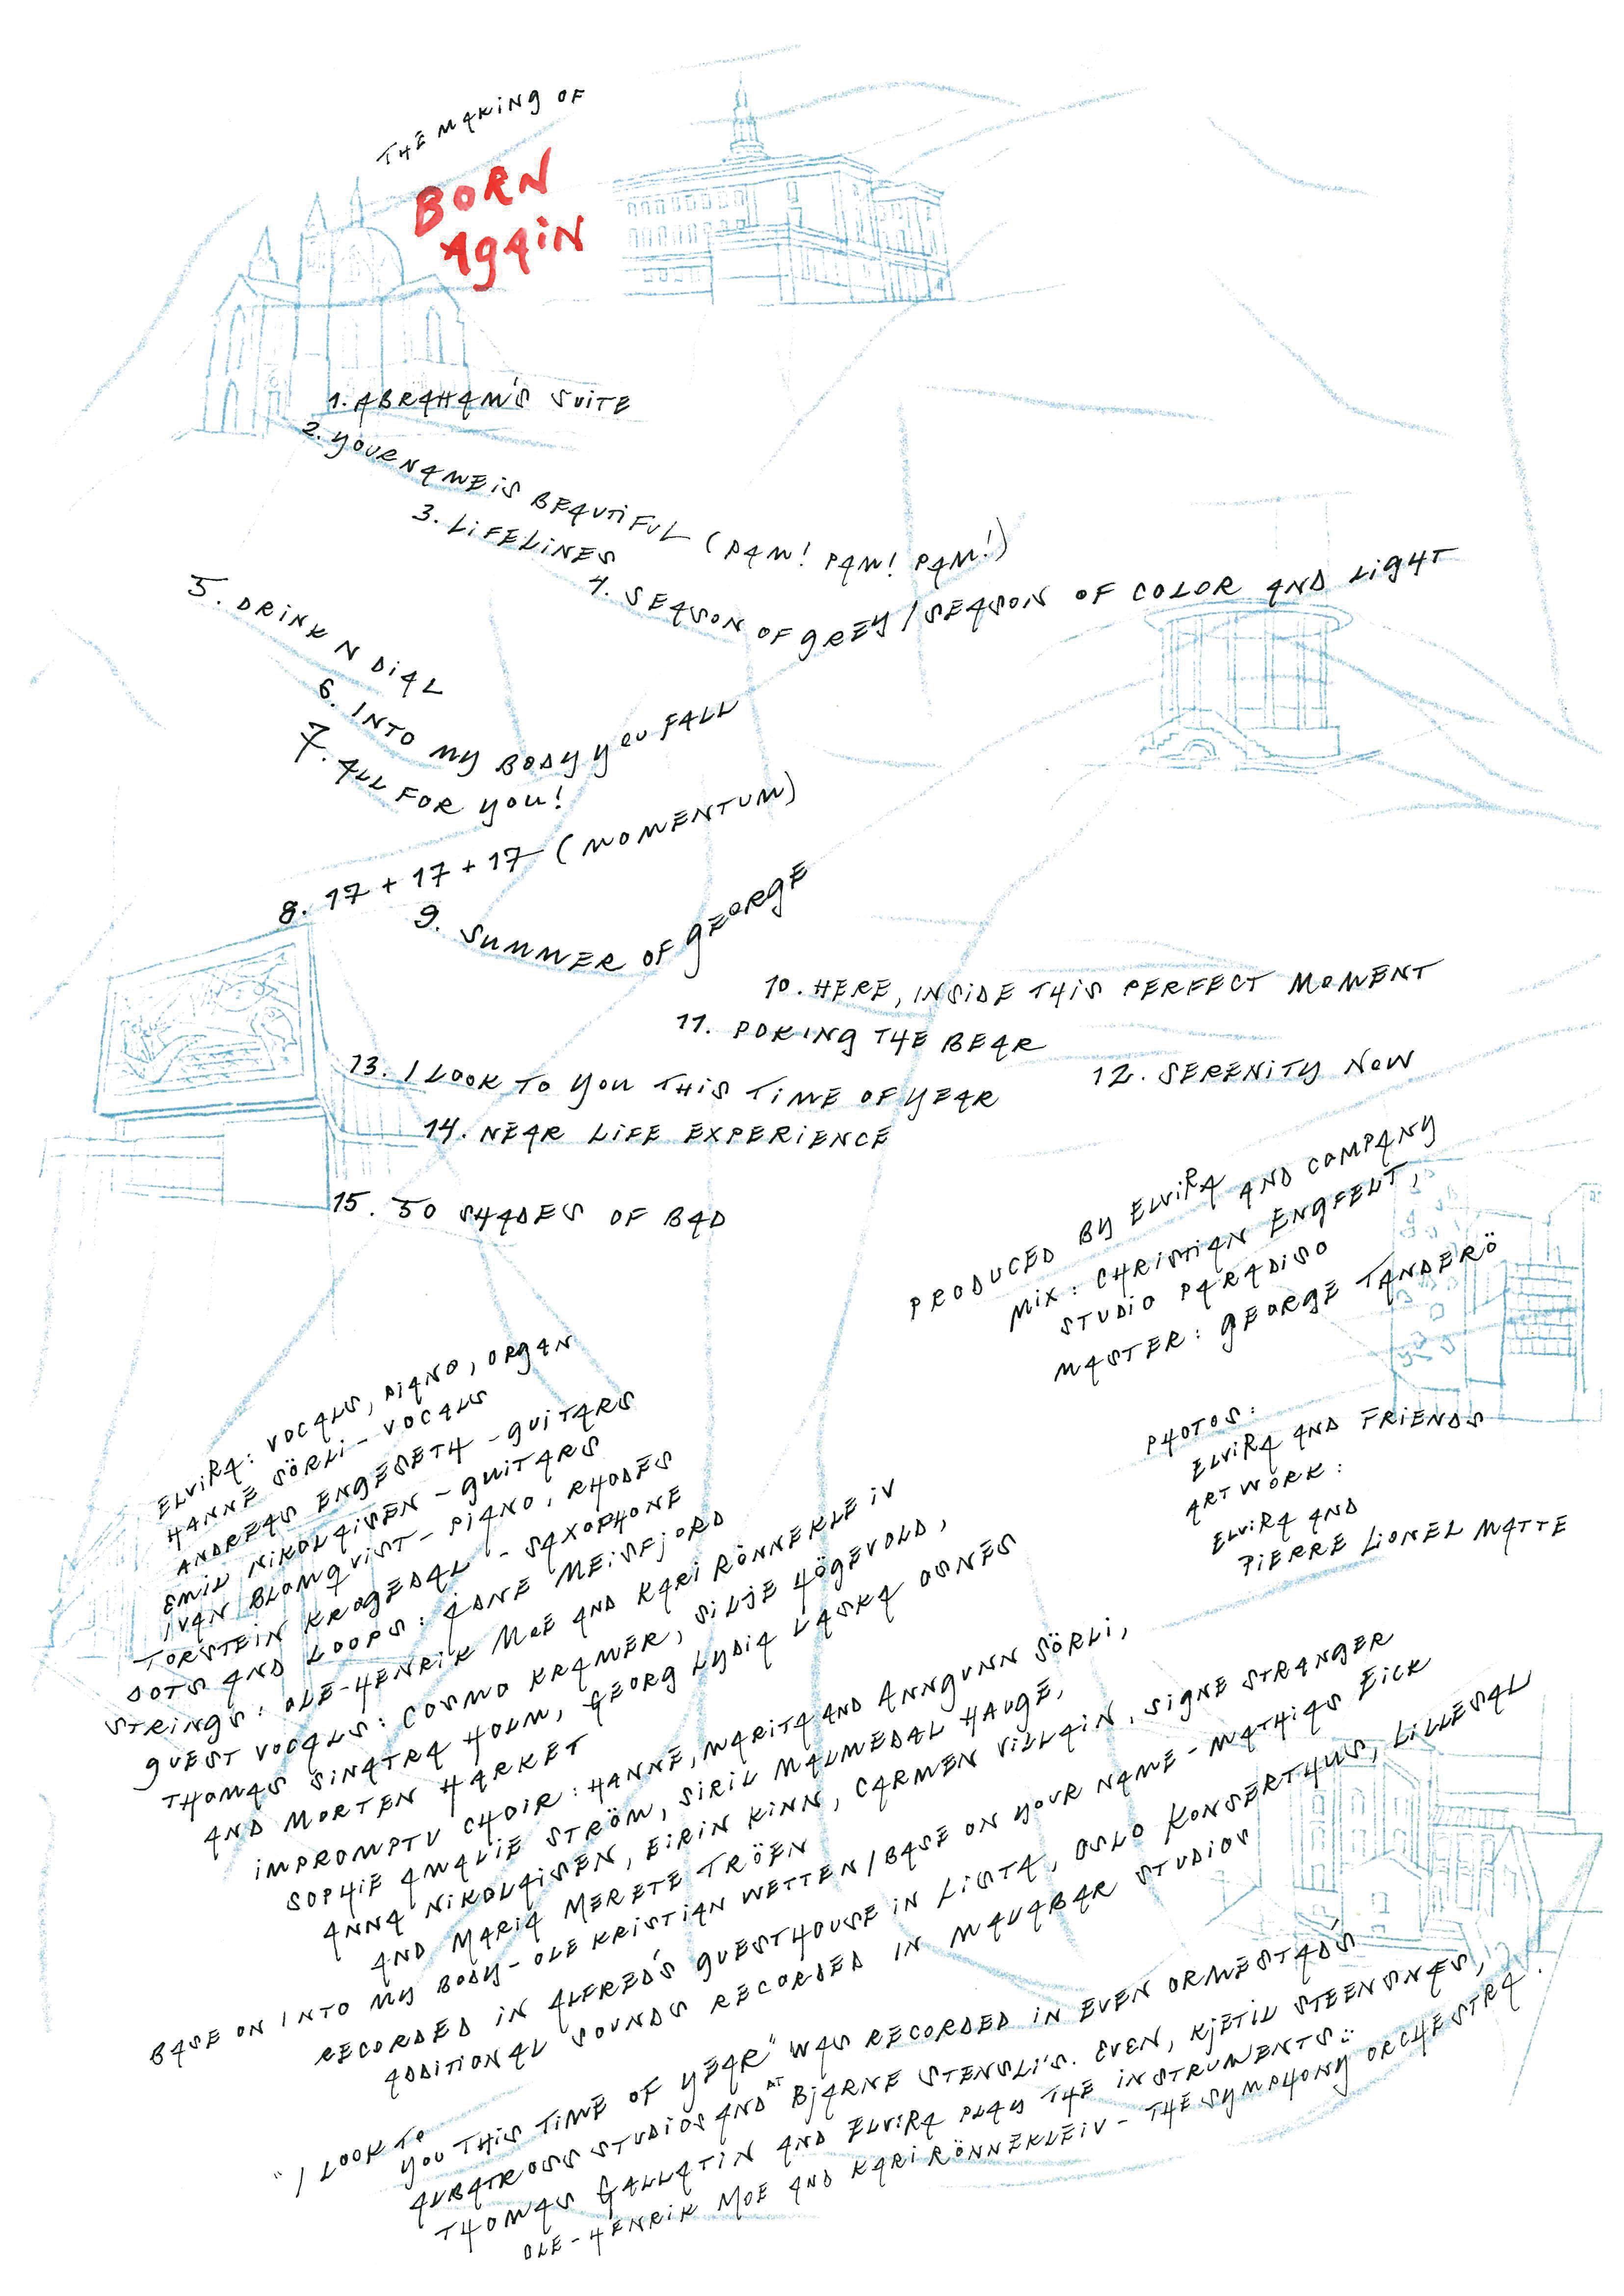 THE MAKING OF
BORN
AGAIN
1. ABRAHAM'S SUITE
2. YOUR NAME IS BEAUTIFUL (PAM! PAM! PAM!)
3. LIFELINES
4. SEASON OF GREY / SEASON OF COLOR AND LIGHT
5. DRINK N DIAL
6. INTO MY BODY YOU FALL
7. ALL FOR YOU!
8. 17 + 17 + 17 (MOMENTUM)
9. SUMMER OF GEORGE
10. HERE, INSIDE THIS PERFECT MOMENT
11. POKING THE BEAR
12. SERENITY NOW
13. I LOOK TO YOU THIS TIME OF YEAR
14. NEAR LIFE EXPERIENCE
15. 50 SHADES OF BAD
PRODUCED BY ELVIRA AND COMPANY
MIX: CHRISTIAN ENGFELT,
STUDIO PARADISO
MASTER: GEORGE TANDERÖ
PHOTOS:
ELVIRA AND FRIENDS
ARTWORK:
ELVIRA AND
PIERRE LIONEL MATTE
ELVIRA: VOCALS, PIANO, ORGAN
HANNE SÖRLI - VOCALS
ANDREAS ENGESETH - GUITARS
EMIL NIKOLAISEN - GUITARS
IVAN BLOMQVIST - PIANO, RHODES
TORSTEIN KROGEDAL - SAXOPHONE
DOTS AND LOOPS: JONE MEISFJORD
STRINGS: OLE-HENRIK MOE AND KARI RÖNNEKLEIV
GUEST VOCALS: COSMO KRAMER, SILJE HÖGEVOLD,
THOMAS SINATRA HOLM, GEORG LYDIA LASKA OSNES
AND MORTEN HARKET
IMPROMPTU CHOIR: HANNE, MARITA AND ANNGUNN SÖRLI,
SOPHIE AMALIE STRÖM, SIRIL MALMEDAL HAUGE,
ANNA NIKOLAISEN, EIRIN KINN, CARMEN VILLAIN, SIGNE STRANGER
AND MARIA MERETE TRÖEN
BASE ON INTO MY BODY - OLE KRISTIAN WETTEN / BASE ON YOUR NAME - MATHIAS EICK
RECORDED IN ALFRED'S GUESTHOUSE IN LISTA, OSLO KONSERTHUS, LILLESAL
ADDITIONAL SOUNDS RECORDED IN MALABAR STUDIOS
"I LOOK TO
YOU THIS TIME OF YEAR" WAS RECORDED IN EVEN ORMESTAD'S
ALBATROSS STUDIOS AND AT BJARNE STENSLI'S. EVEN, KJETIL STEENSNÆS,
THOMAS GALLATIN AND ELVIRA PLAY THE INSTRUMENTS:
OLE-HENRIK MOE AND KARI RÖNNEKLEIV - THE SYMPHONY ORCHESTRA.